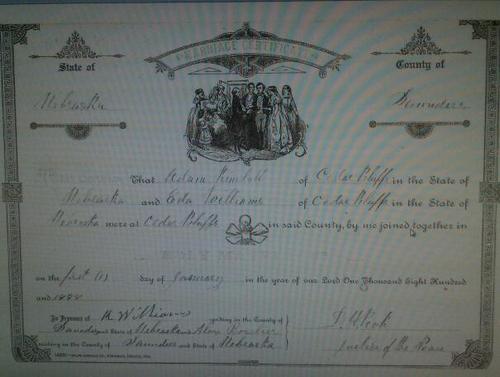 MARRIAGE CERTIFICATE
State of
County of
Nebraska
Saunders
That Adam Kimball of Cedar Bluffs in the State of
Nebraska and Eda Williams of Cedar Bluffs in the State of
Nebraska were at Cedar Bluffs in said County, by me joined together in
on the first (1) day of January in the year of our Lord One Thousand Eight Hundred
and
In Presence of Williams residing in the County of
Saunders and State of Nebraska and
residing in the County of Saunders and State of Nebraska
Justice of the Peace